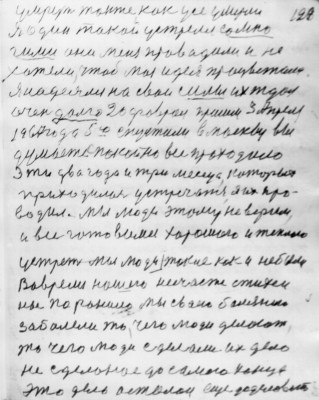 умрет также как все умерли 122
Я один такой встреч со мно
гими они меня провадили и не
хотели, чтоб моя идея процветала.
Я надеялся на свои силы их ждал
очен долго. 20 февраля пришли 3 Апреля
196 года 5го спустили в Москву вы
думаете покойно все проходило
Эти два года и три месяца, которых
приходилося встречать я их про-
водил. Мы люди этому не верим,
а все готовили хорошого и теплаго
устреч мы люди такие как и не были
Вовремя нашего несчастя стихий
ные поранило мы с вами болезнею
заболели то, чего люди делают,
то чего люди сделали их дело
не сделаное до самого конца
Это дело осталося еще доделоват